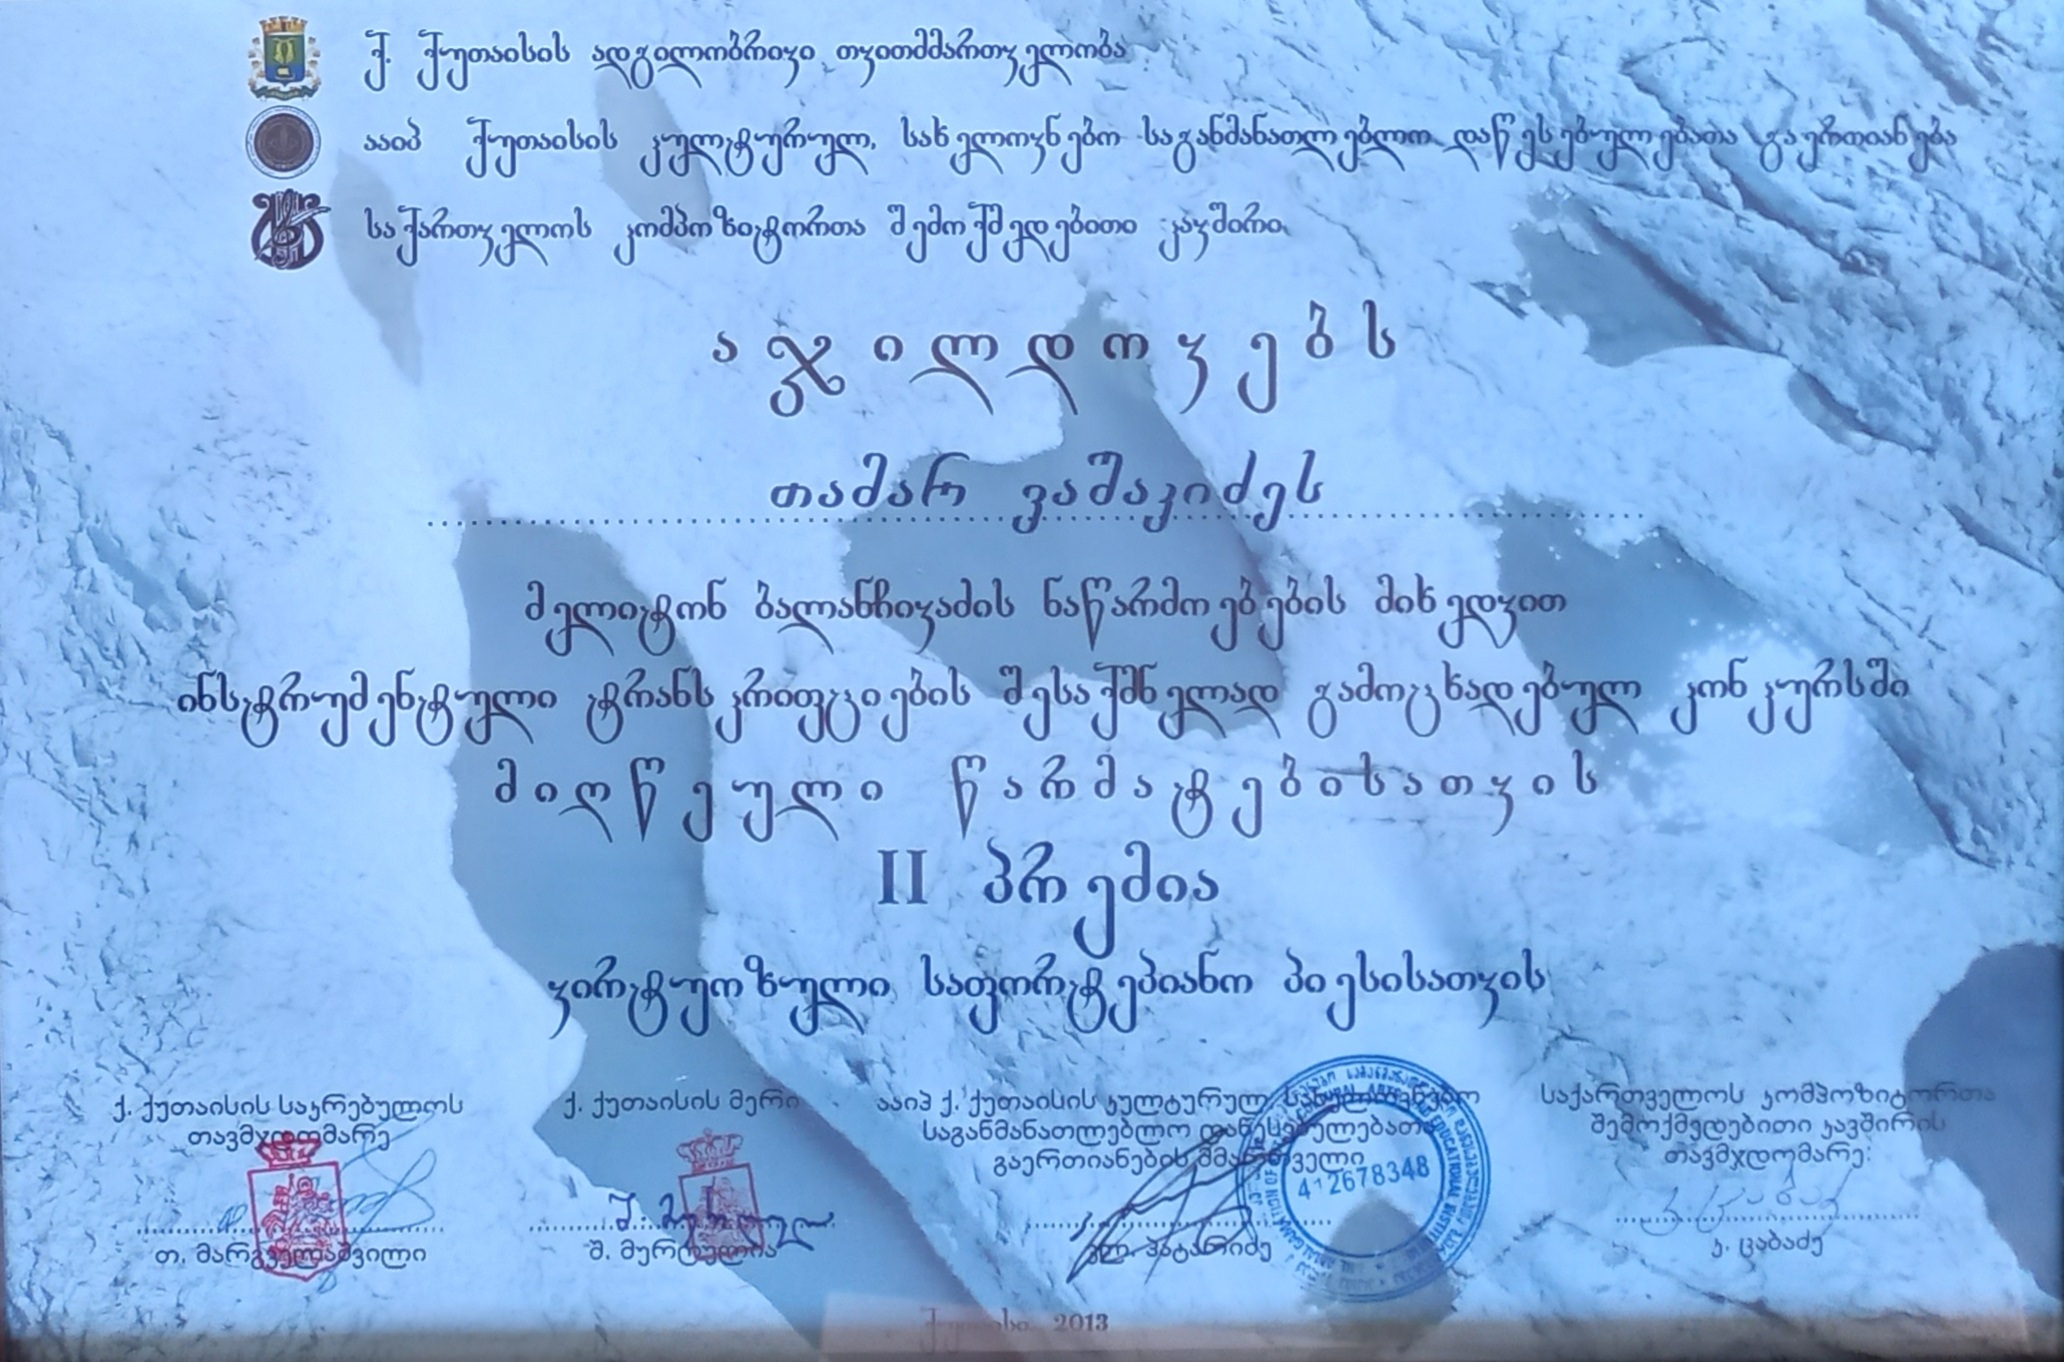 ქ. ქუთაისის ადგილობრივი თვითმმართველობა
ააიპ ქუთაისის კულტურულ, სახელოვნებო საგანმანათლებლო დაწესებულებათა გაერთიანება
საქართველოს კომპოზიტორთა შემოქმედებითი კავშირი
აჯილდოვებს
თამარ ვაშაკიძეს
მელიტონ ბალანჩივაძის ნაწარმოებების მიხედვით
ინსტრუმენტული ტრანსკრიფციების შესაქმნელად გამოცხადებულ კონკურსში
მიღწეული წარმატებისათვის
II პრემია
ვირტუოზული საფორტეპიანო პიესისათვის
ქ. ქუთაისის საკრებულოს
თავმჯდომარე
თ. მარგველაშვილი
ქ. ქუთაისის მერი
შ. მურღულია
ააიპ ქ. ქუთაისის კულტურულ, სახელოვნებო
საგანმანათლებლო დაწესებულებათა
გაერთიანების მმართველი
412678348
ალ. პატარიძე
საქართველოს კომპოზიტორთა
შემოქმედებითი კავშირის
თავმჯდომარე:
კ. ცაბაძე
ქუთაისი 2013